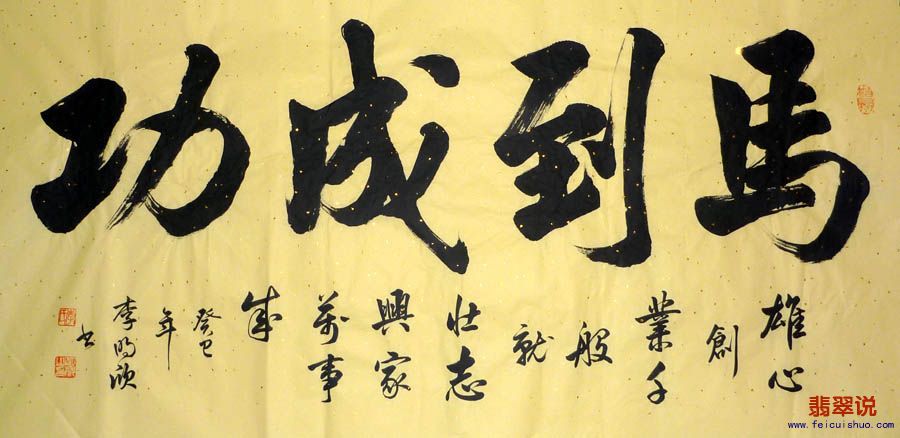 馬到成功
雄心
創
業千
般
就
壮志
興家
萬事
成
癸巳
年
李
书
翡翠说
www.feicuishuo.com